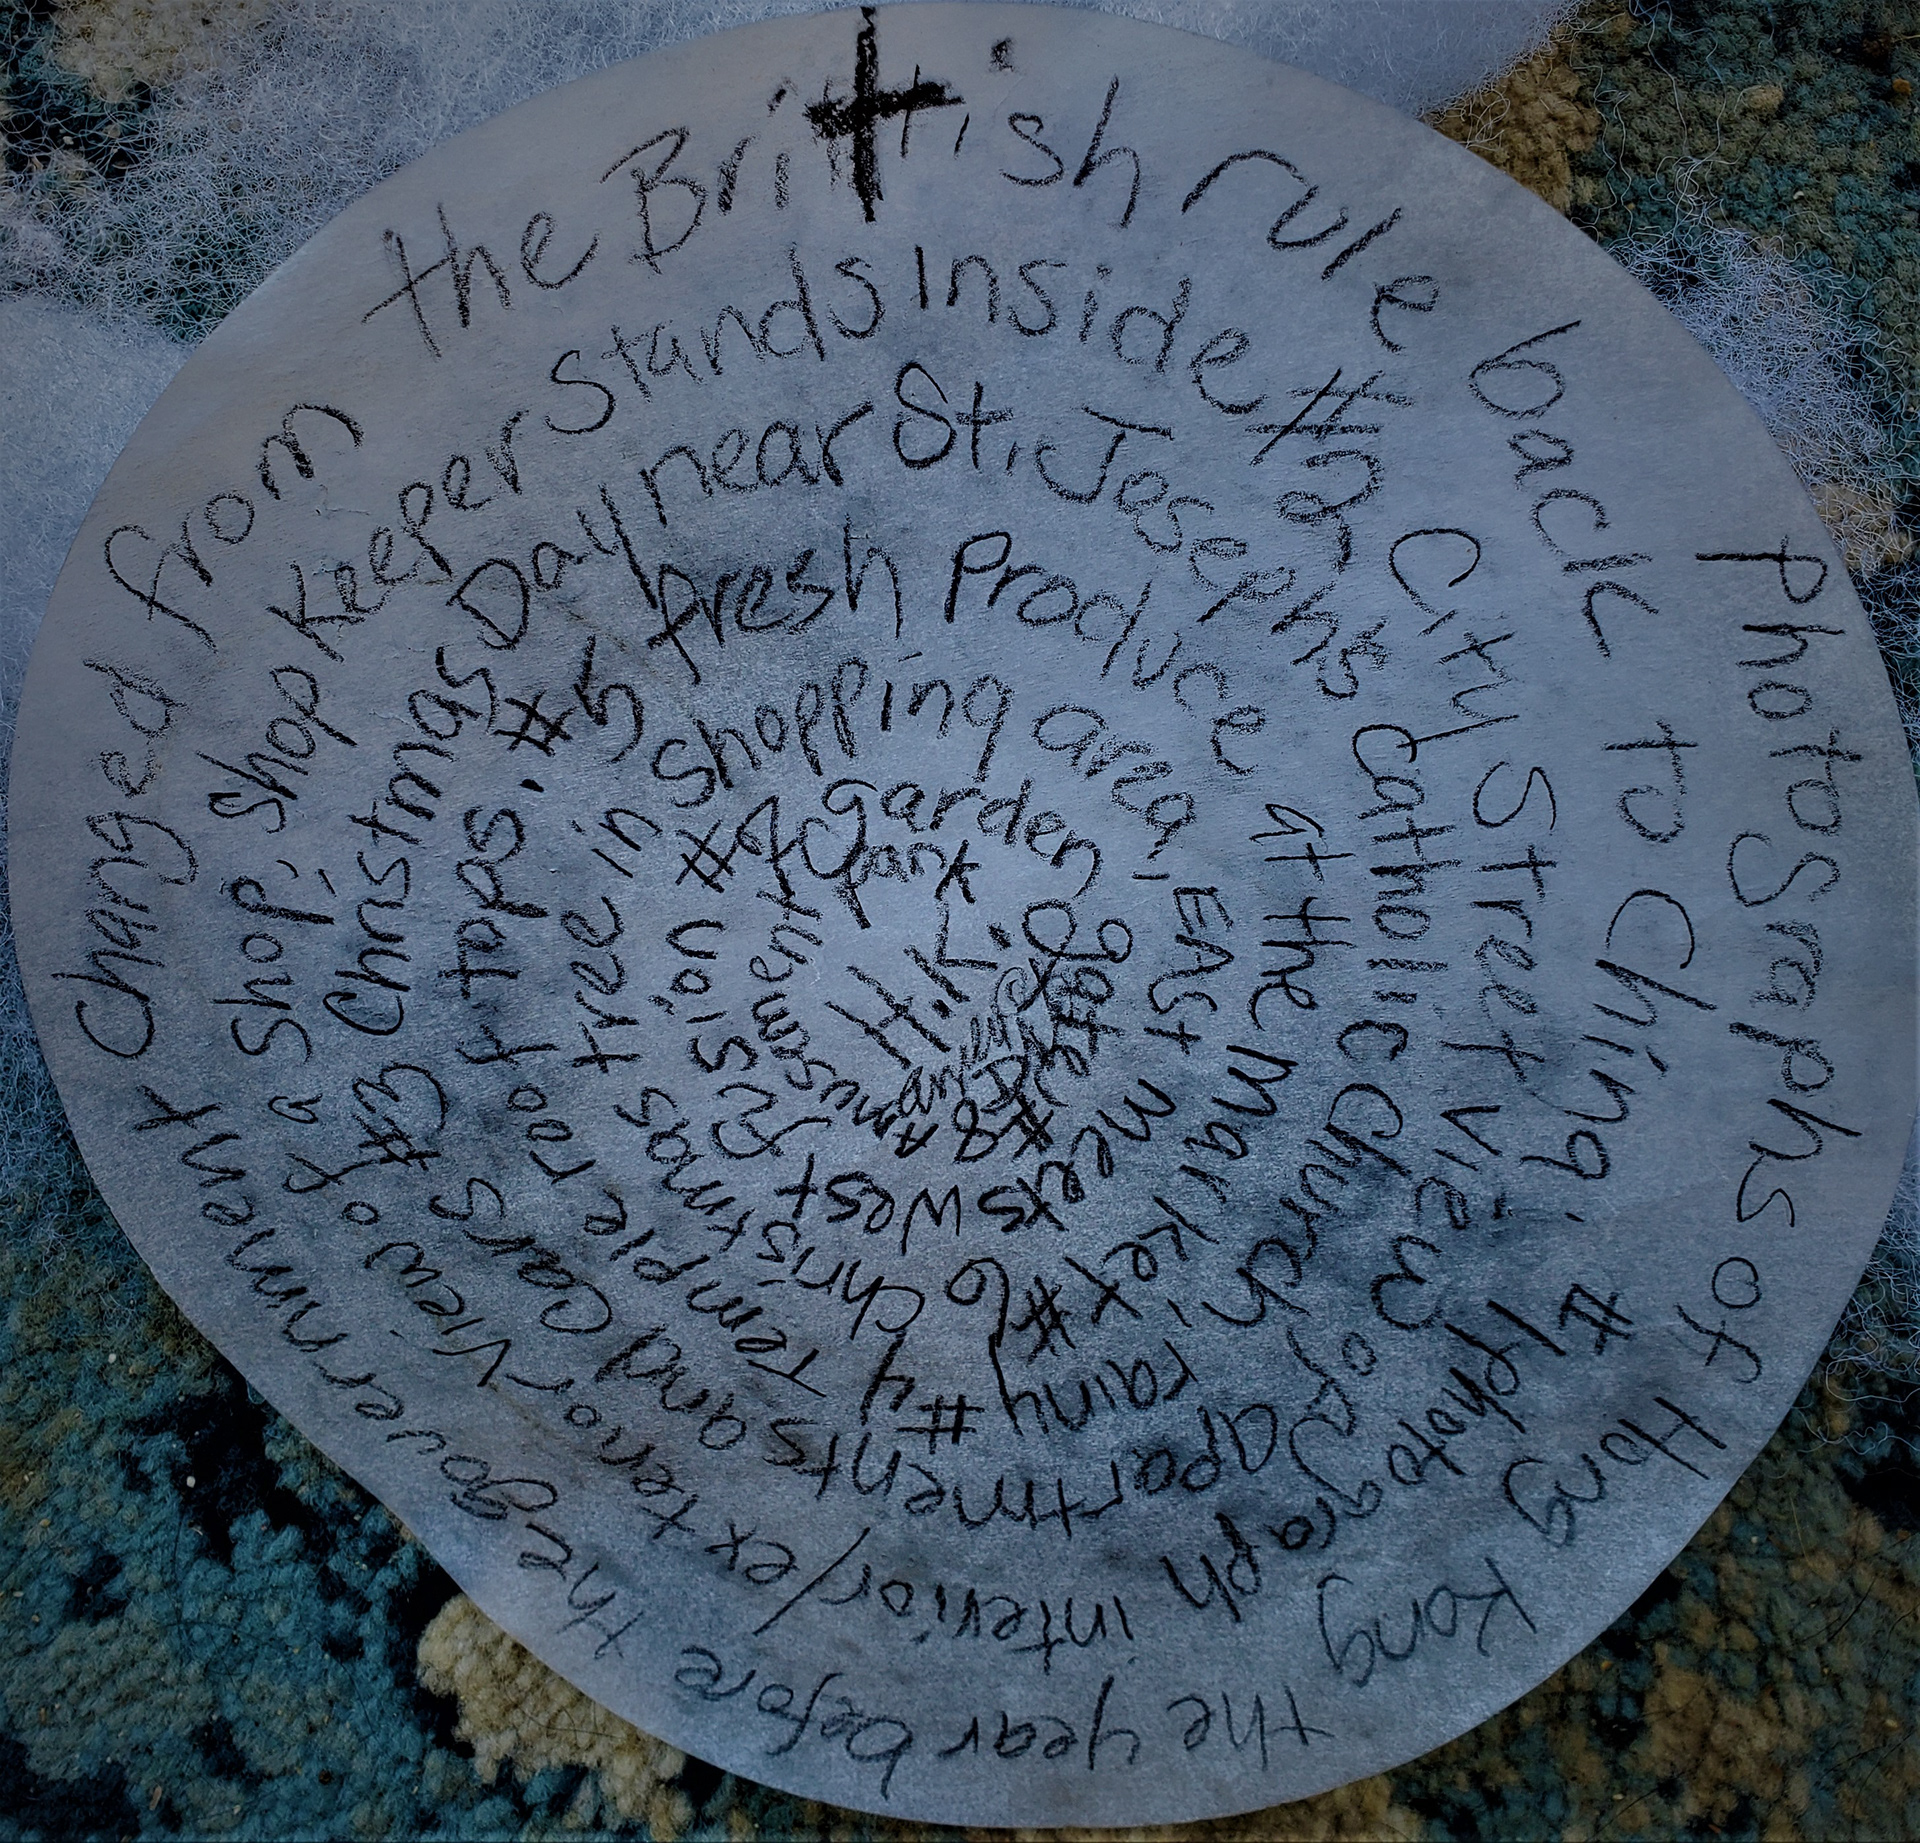 Photographs of Hong Kong the year before the government changed from the Brittish rule back to China.
#1 photograph interior/exterior view of a shop, shop keeper stands inside
#2 City Street view of apartments and cars
#3 Christmas Day near St. Josephs Catholic Church rainy
#4 Temple roof tops.
#5 fresh produce at the market
#6 Christmas tree in shopping area, East meets West fusion
#7 garden gate
#8 Amusement park
H.K.